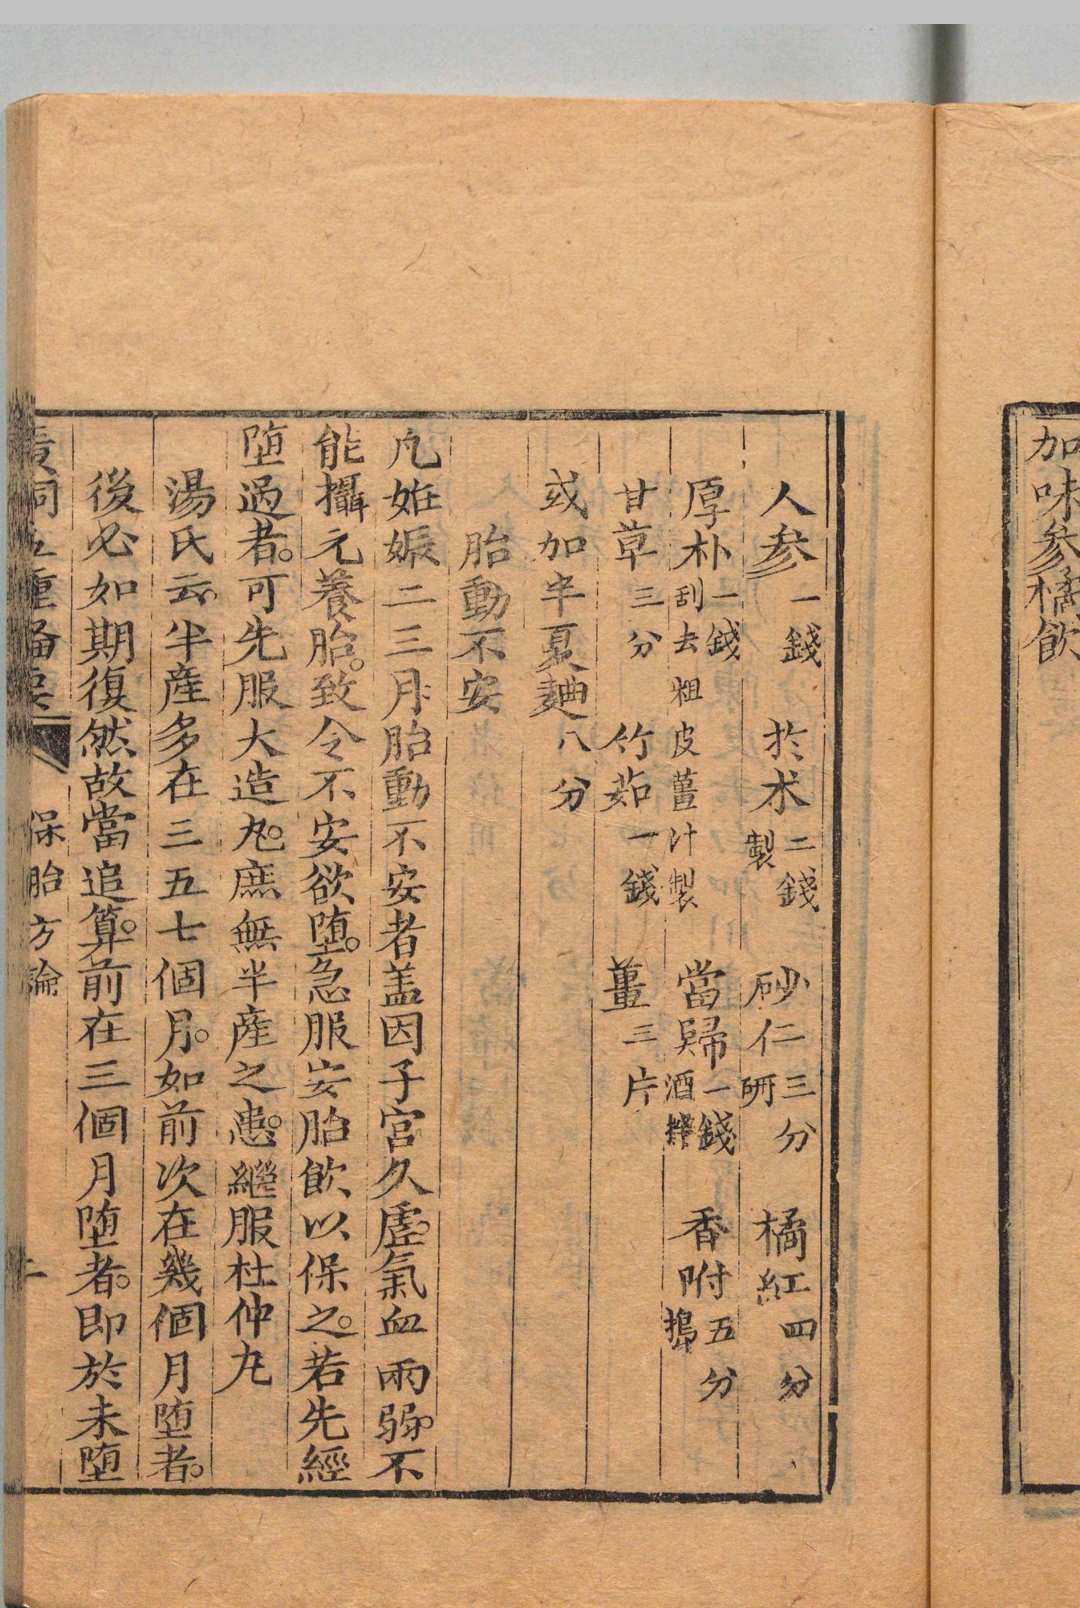 加味參橘飲
人參一錢 扵术二錢製 砂仁三分研 橘紅四分
厚朴一錢刮去粗皮薑汁製 當歸一錢酒 香附五分搗
甘草三分 竹茹一錢 薑三片
或加半夏麯八分
胎動不安
凢姙娠二三月胎動不安者盖因子宮久虛。氣血兩弱。不
能攝元養胎。致令不安欲墮。急服安胎飲以保之。若先經
墮過者。可先服大造丸。庶無半産之患。繼服杜仲丸
湯氏云。半産多在三五七個月。如前次在幾個月墮者。
後必如期復然故當追算。前在三個月墮者。即於未墮
保胎方論